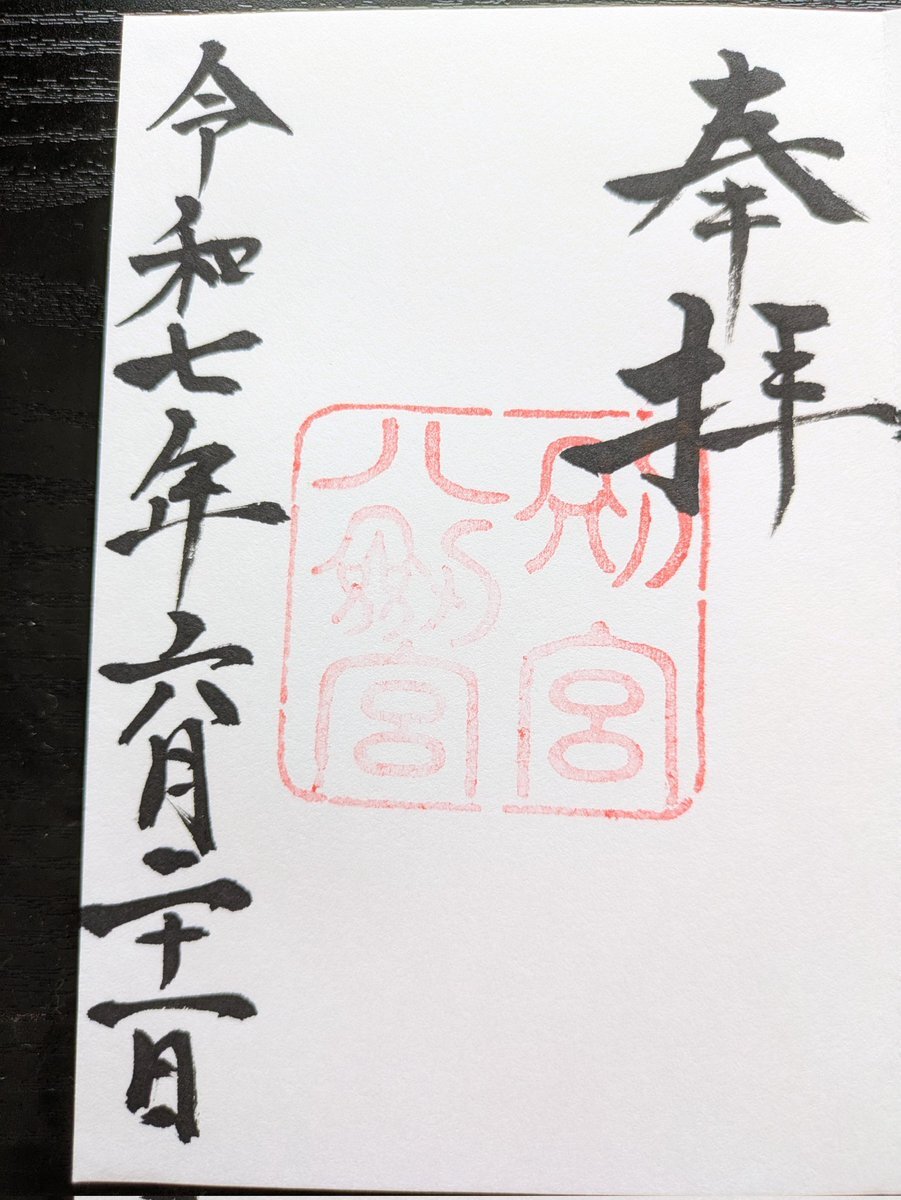 奉拝
別宮
八劔宮
令和七年六月二十一日